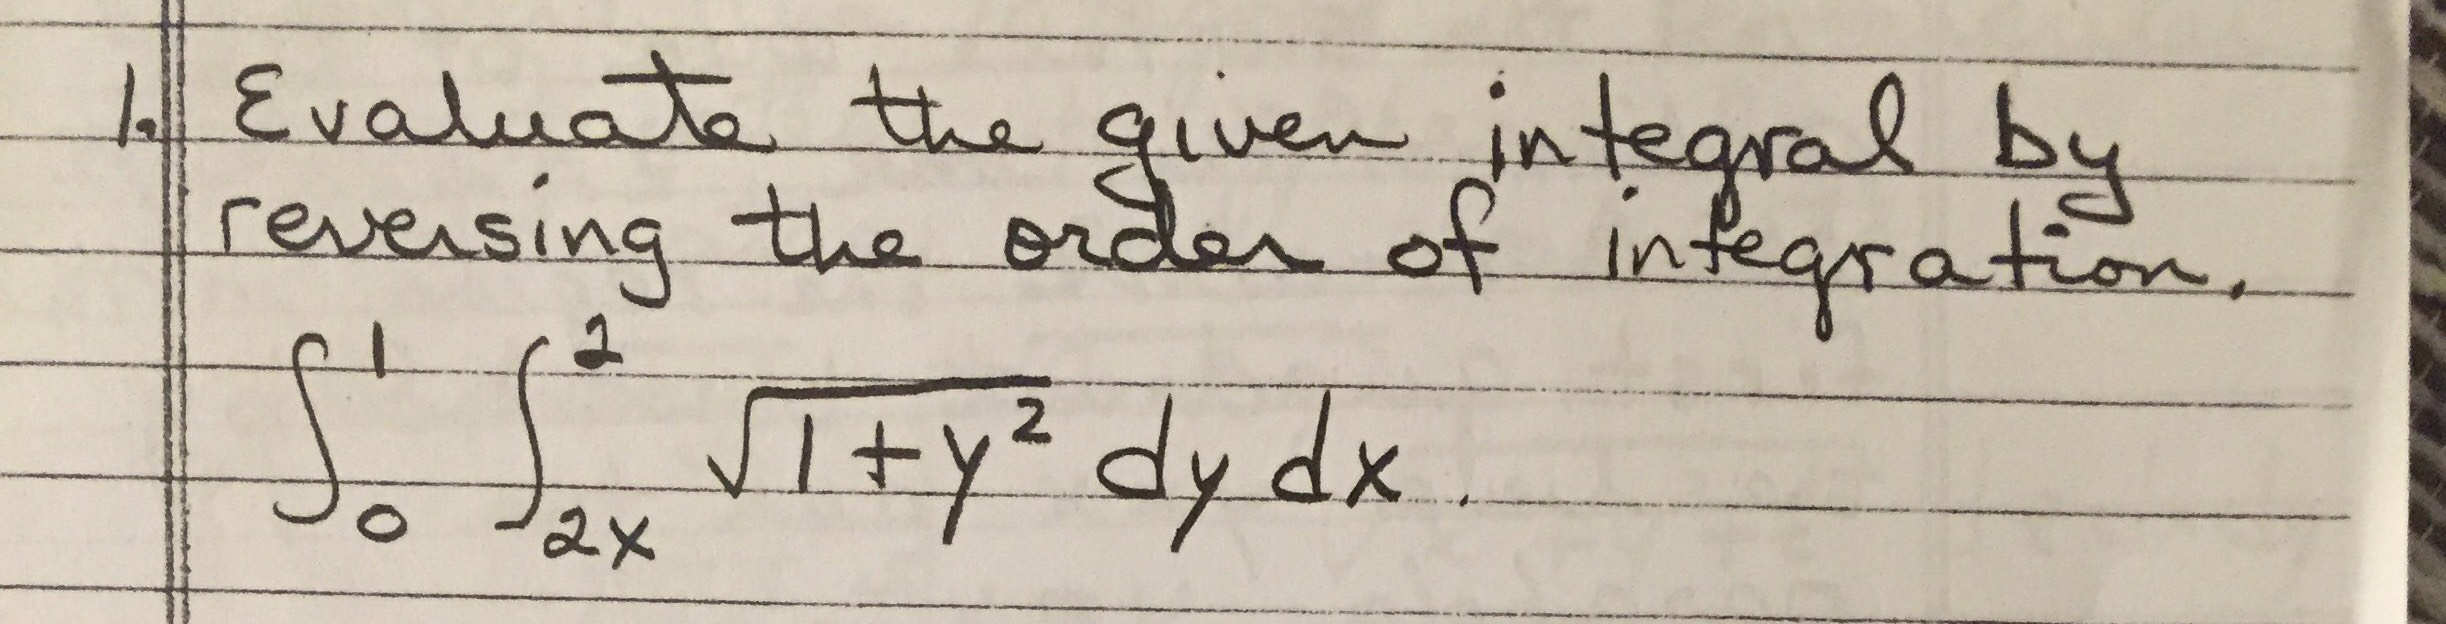 1. Evaluate the given integral by
reversing the order of integration.
∫₀¹ ∫₂ₓ² √(1+y²) dy dx.